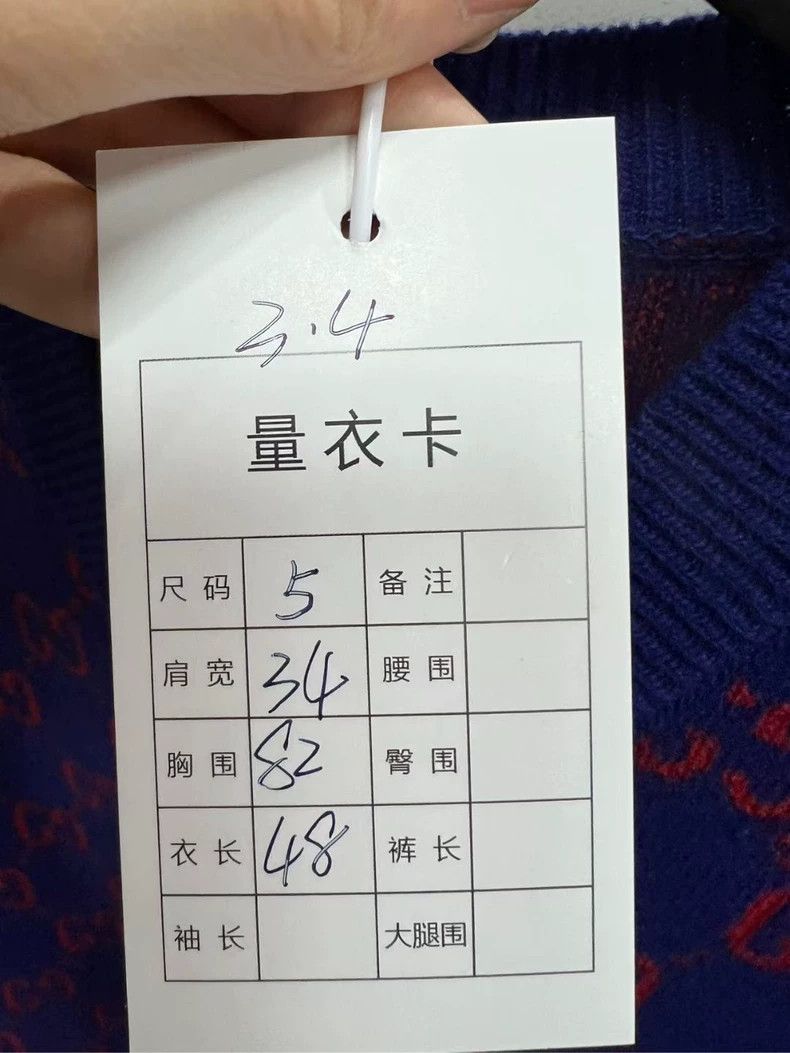 3.4
量衣卡
尺码 5 备注
肩宽 34 腰围
胸围 82 臀围
衣长 48 裤长
袖长 大腿围